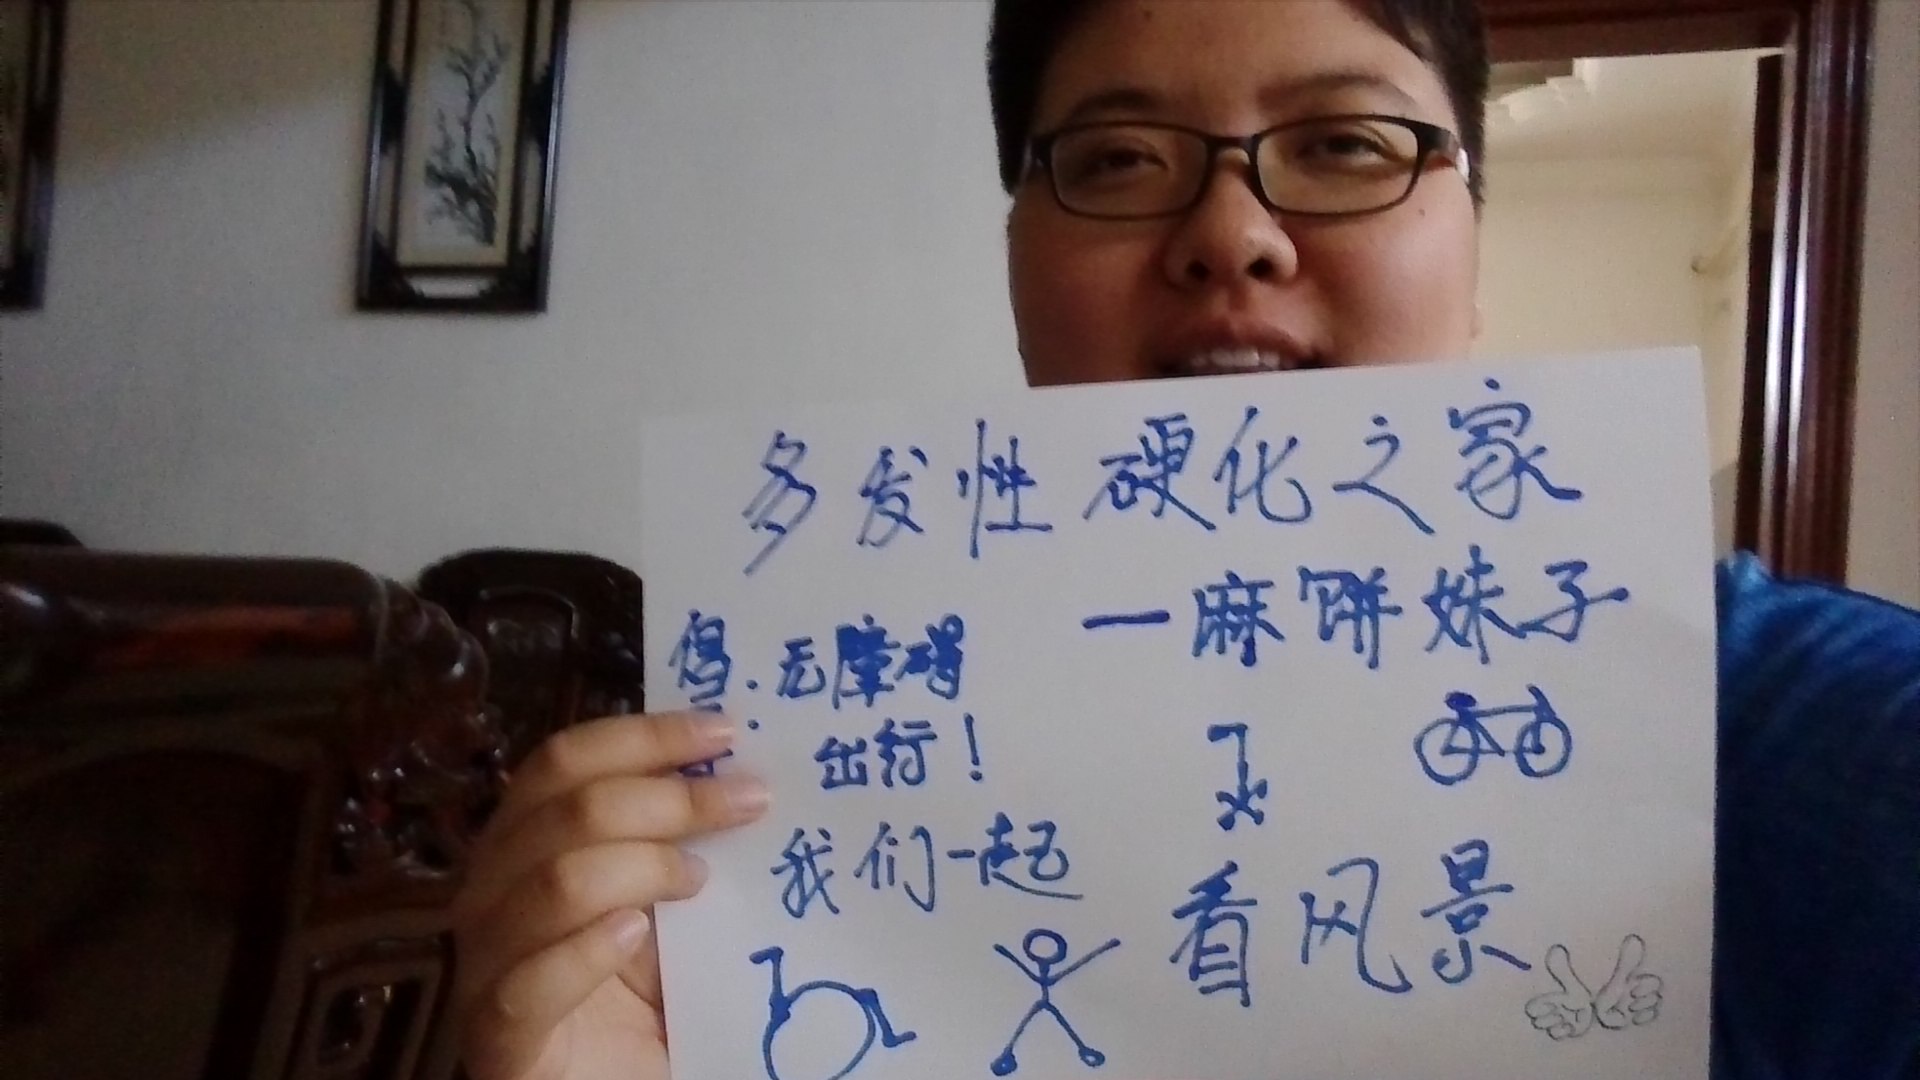 多发性硬化之家
一麻饼妹子
无障碍
出行!
我们一起
看风景